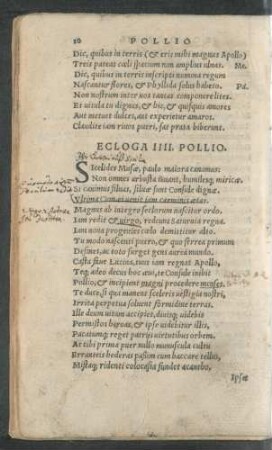 10 POLLIO
Dic, quibus in terris (& eris mihi magnus Apollo)
Treis pateat cœli spatium non amplius ulnas. Me.
Dic, quibus in terris inscripti nomina regum
Nascantur flores, & Phyllida solus habeto. Pal.
Non nostrum inter uos tantas componere lites.
Et uitula tu dignus, & hic, & quisquis amores
Aut metuet dulces, aut experietur amaros.
Claudite iam riuos pueri, sat prata biberunt.
ECLOGA IIII. POLLIO.
Sicelides Musæ, paulo maiora canamus:
Non omnes arbusta iuuant, humilesq́; miricæ.
Si canimus siluas, siluæ sint Consule dignæ.
Vltima Cumæi uenit iam carminis ætas.
Magnus ab integro seclorum nascitur ordo.
Iam redit & uirgo, redeunt Saturnia regna.
Iam noua progenies cœlo demittitur alto.
Tu modo nascenti puero, & quo ferrea primum
Desinet, ac toto surget gens aurea mundo,
Casta faue Lucina, tuus iam regnat Apollo,
Teq́; adeo decus hoc æui, te Consule inibit
Pollio, & incipient magni procedere menses.
Te duce, si qua manent sceleris uestigia nostri,
Irrita perpetua soluent formidine terras.
Ille deum uitam accipiet, diuisq́; uidebit
Permistos heroas, & ipse uidebitur illis,
Pacatumq́; reget patrijs uirtutibus orbem.
At tibi prima puer nullo munuscula cultu
Erranteis hederas passim cum baccare tellus,
Mistaq́; ridenti colocasia fundet acantho,
Ipsæ